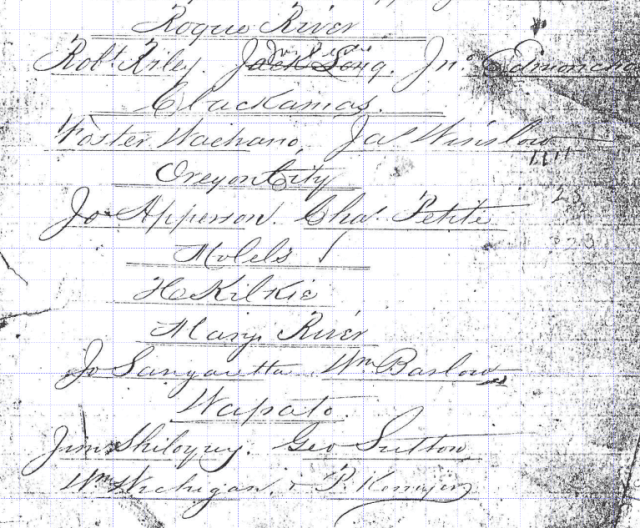 Rogue River
Robt Riley. Jack Long. Jno Edmoncha
Clackamas.
Foster Wachano, Jas Winslow
Oregon City
Jo Apperson. Chas. Petite
Molels
H Kilkie
Marys River
Jo Sangaretta Wm Barlow
Wapato.
Jim Shiloquy. Geo Sutton
Wm Wichigan, &